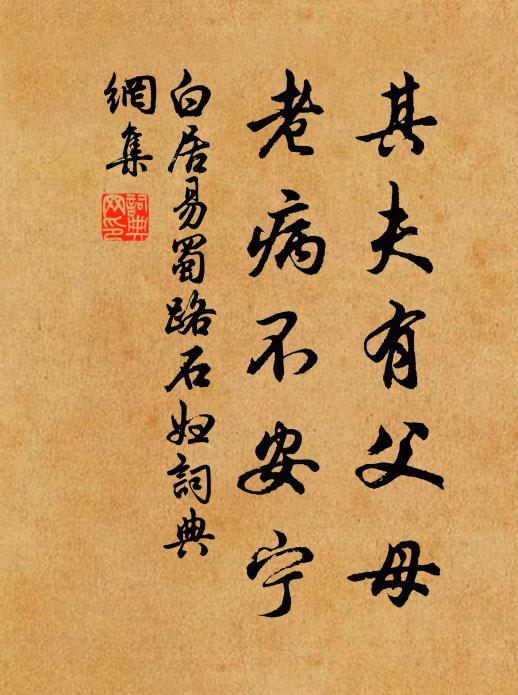 其夫有父母
老病不安宁
白居易蜀路石妇詞典
網集
詞典
网印